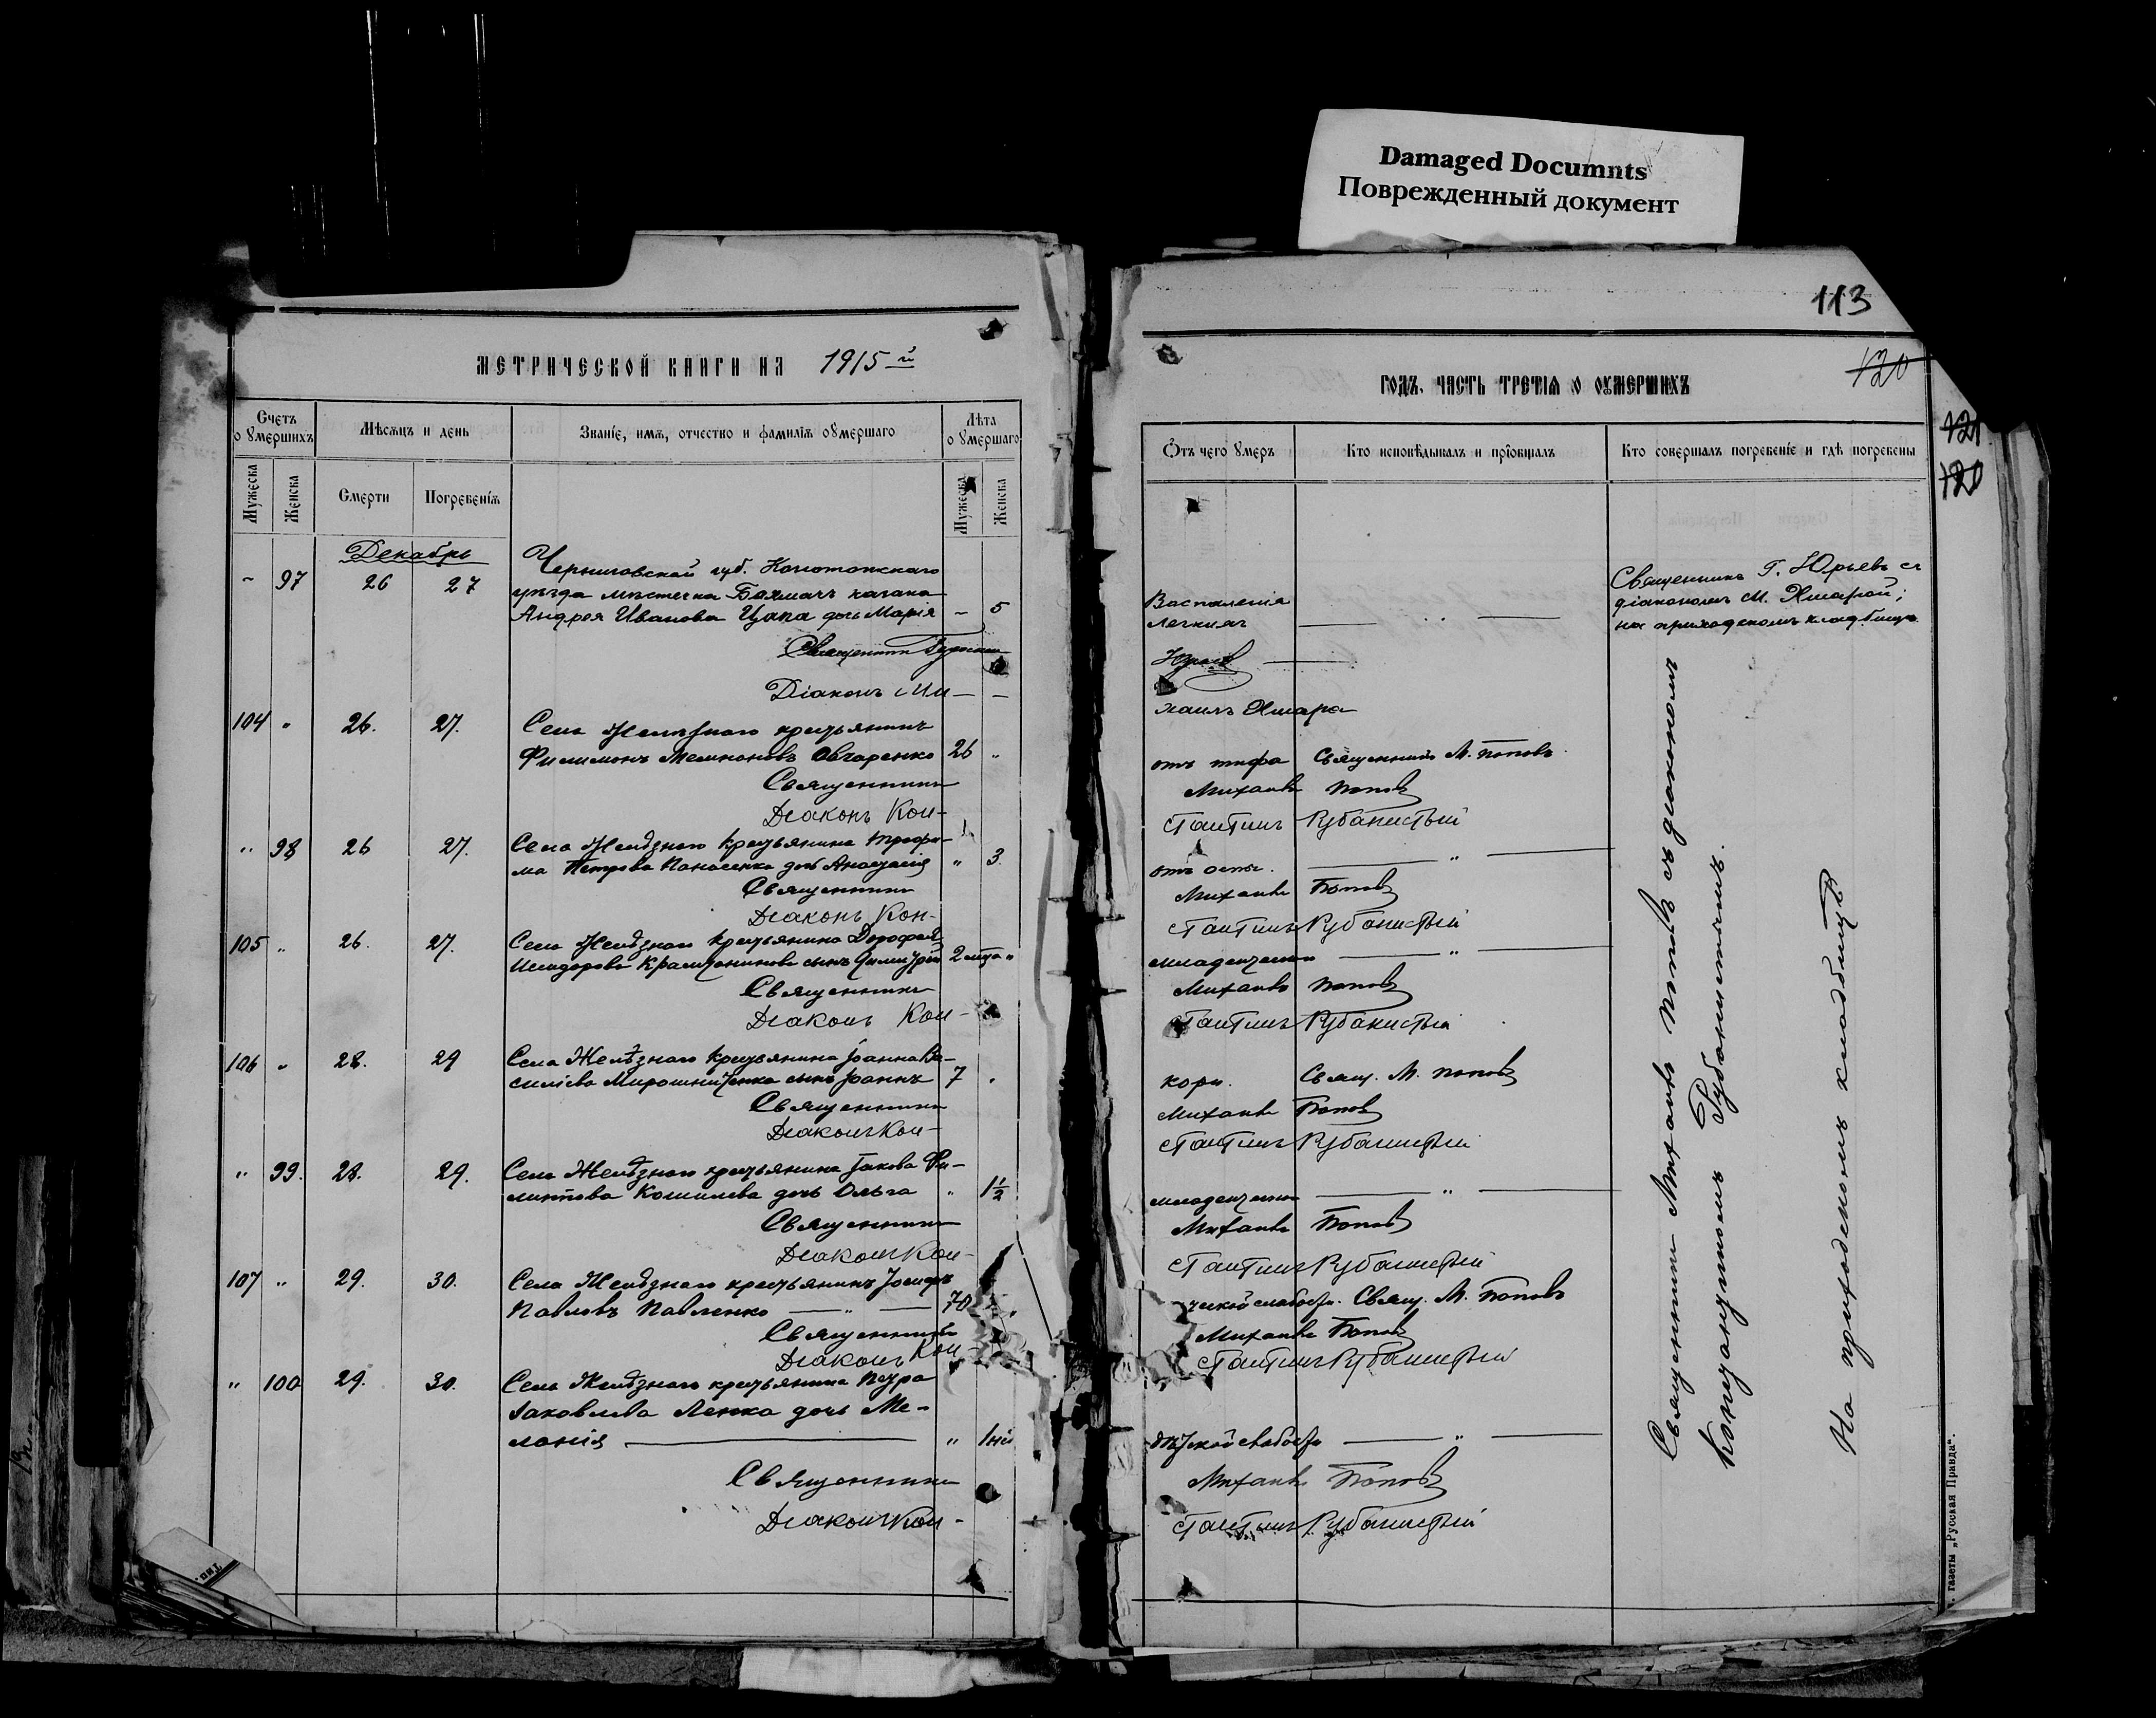 Damaged Documnts
Поврежденный документ
113
МЕТРИЧЕСКОЙ КНИГИ НА 1915 й
ГОДЪ, ЧАСТЬ ТРЕТІЯ О ОУМЕРШИХЪ
120
121
120
Счетъ о умершихъ
Мѣсяцъ и день
Званіе, имя, отчество и фамилія оумершаго
Лѣта о умершаго
Мужеска
Женска
Смерти
Погребенія
Мужеска
Женска
Отъ чего умеръ
Кто исповѣдывалъ и пріобщалъ
Кто совершалъ погребеніе и гдѣ погребены
Декабрь
97 26 27
Черниговской губ. Конотопскаго
уѣзда мѣстечка Бахмачъ казака
Андрея Иванова Цапа дочь Марія – 5
Воспаленія
легкихъ
Священникъ Г. Юрьевъ съ
діакономъ М. Яшарой;
на приходскомъ кладбищѣ
Священникъ
Юрьевъ
Діаконъ Ми-
хаилъ Яшара
104 " 26. 27.
Села Желѣзнаго крестьянинъ
Филимонъ Овчаренко 26 "
отъ тифа Священникъ М. Поповъ
Священникъ Михаилъ Поповъ
Діаконъ Кон-
стантинъ Рубанистый
" 98 26 27.
Села Желѣзнаго крестьянина Трофи-
ма Петрова Панасенка дочь Анастасія " 3
отъ оспы. "
Священникъ Михаилъ Поповъ
Діаконъ Кон-
стантинъ Рубанистый
105 " 26. 27.
Села Желѣзнаго крестьянина Дорофея
Исидорова сынъ Димитрій 2 мца "
младенческой "
Священникъ Михаилъ Поповъ
Діаконъ Кон-
стантинъ Рубанистый
106 " 28. 29
Села Желѣзнаго крестьянина Іоанна Ва-
силіева Мирошниченка сынъ Іоаннъ 7 "
кори. Свящ. М. Поповъ
Священникъ Михаилъ Поповъ
Діаконъ Кон-
стантинъ Рубанистый
" 99. 28. 29.
Села Желѣзнаго крестьянина Іакова Фи-
липпова Кошилева дочь Ольга " 1½
младенческой "
Священникъ Михаилъ Поповъ
Діаконъ Кон-
стантинъ Рубанистый
107 " 29. 30.
Села Желѣзнаго крестьянинъ Іосифъ
Павловъ Павленко " 70 "
ческой слабости. Свящ. М. Поповъ
Священникъ Михаилъ Поповъ
Діаконъ Кон-
стантинъ Рубанистый
" 100 29. 30.
Села Желѣзнаго крестьянина Петра
Іаковлева Ленка дочь Ме-
ланія " 1
дѣтской слабости "
Священникъ Михаилъ Поповъ
Діаконъ Кон-
стантинъ Рубанистый
Священникъ Михаилъ Поповъ съ діакономъ
Константиномъ Рубанистымъ.
На приходскомъ кладбищѣ
газеты „Русская Правда“.